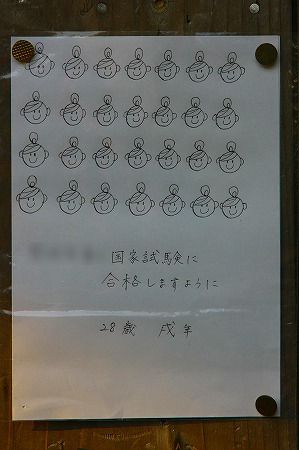 国家試験に
合格しますように
28歳 戌年